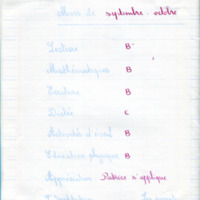 Mois de septembre - octobre
Lecture B
Mathématiques B
Ecriture B
Dictée C
Activités d'éveil B
Education physique B
Appréciation Patrice s'applique
L'Institutrice Les parents